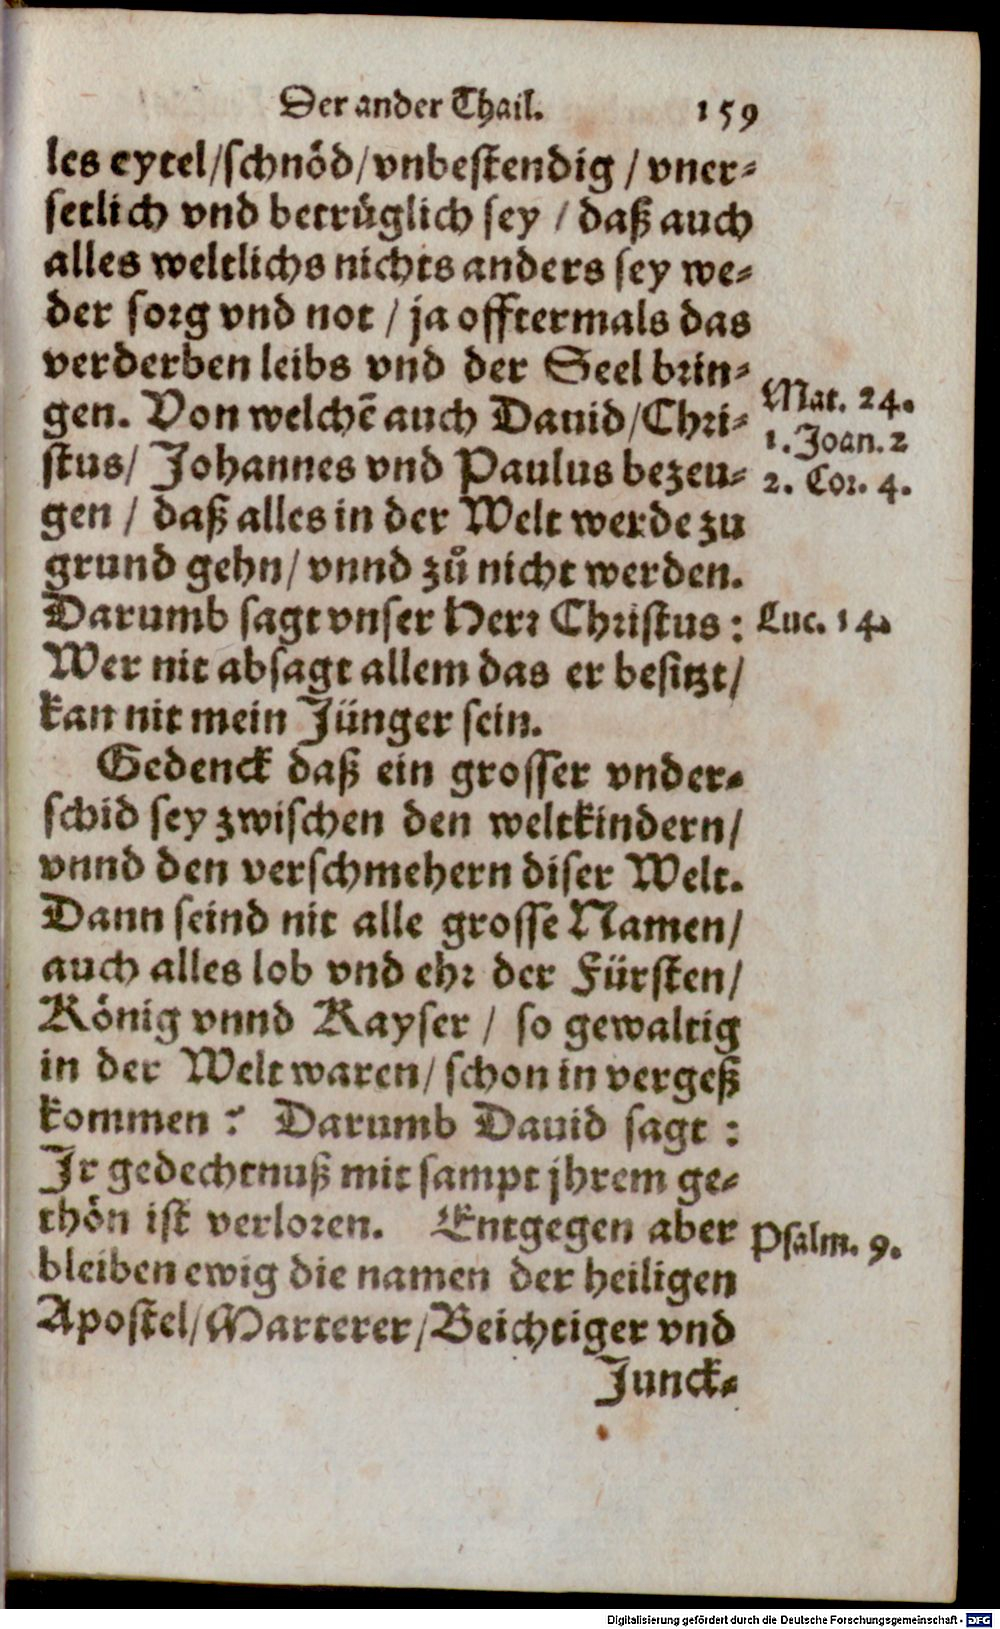 Der ander Thail. 159
les eytel/schnöd/vnbestendig / vner-
setlich vnd betrüglich sey / daß auch
alles weltlichs nichts anders sey we-
der sorg vnd not / ja offtermals das
verderben leibs vnd der Seel brin-
gen. Von welchē auch Dauid/Chri-
Mat. 24.
1. Joan. 2
stus/ Johannes vnd Paulus bezeu-
2. Cor. 4.
gen / daß alles in der Welt werde zu
grund gehn/ vnnd zů nicht werden.
Darumb sagt vnser Herr Christus:
Luc. 14.
Wer nit absagt allem das er besitzt/
kan nit mein Jünger sein.
Gedenck daß ein grosser vnder-
schid sey zwischen den weltkindern/
vnnd den verschmehern diser Welt.
Dann seind nit alle grosse Namen/
auch alles lob vnd ehr der Fürsten/
König vnnd Kayser / so gewaltig
in der Welt waren/ schon in vergeß
kommen? Darumb Dauid sagt:
Ir gedechtnuß mit sampt jhrem ge-
thön ist verloren. Entgegen aber
Psalm. 9.
bleiben ewig die namen der heiligen
Apostel/Marterer/Beichtiger vnd
Junck-
Digitalisierung gefördert durch die Deutsche Forschungsgemeinschaft - DFG